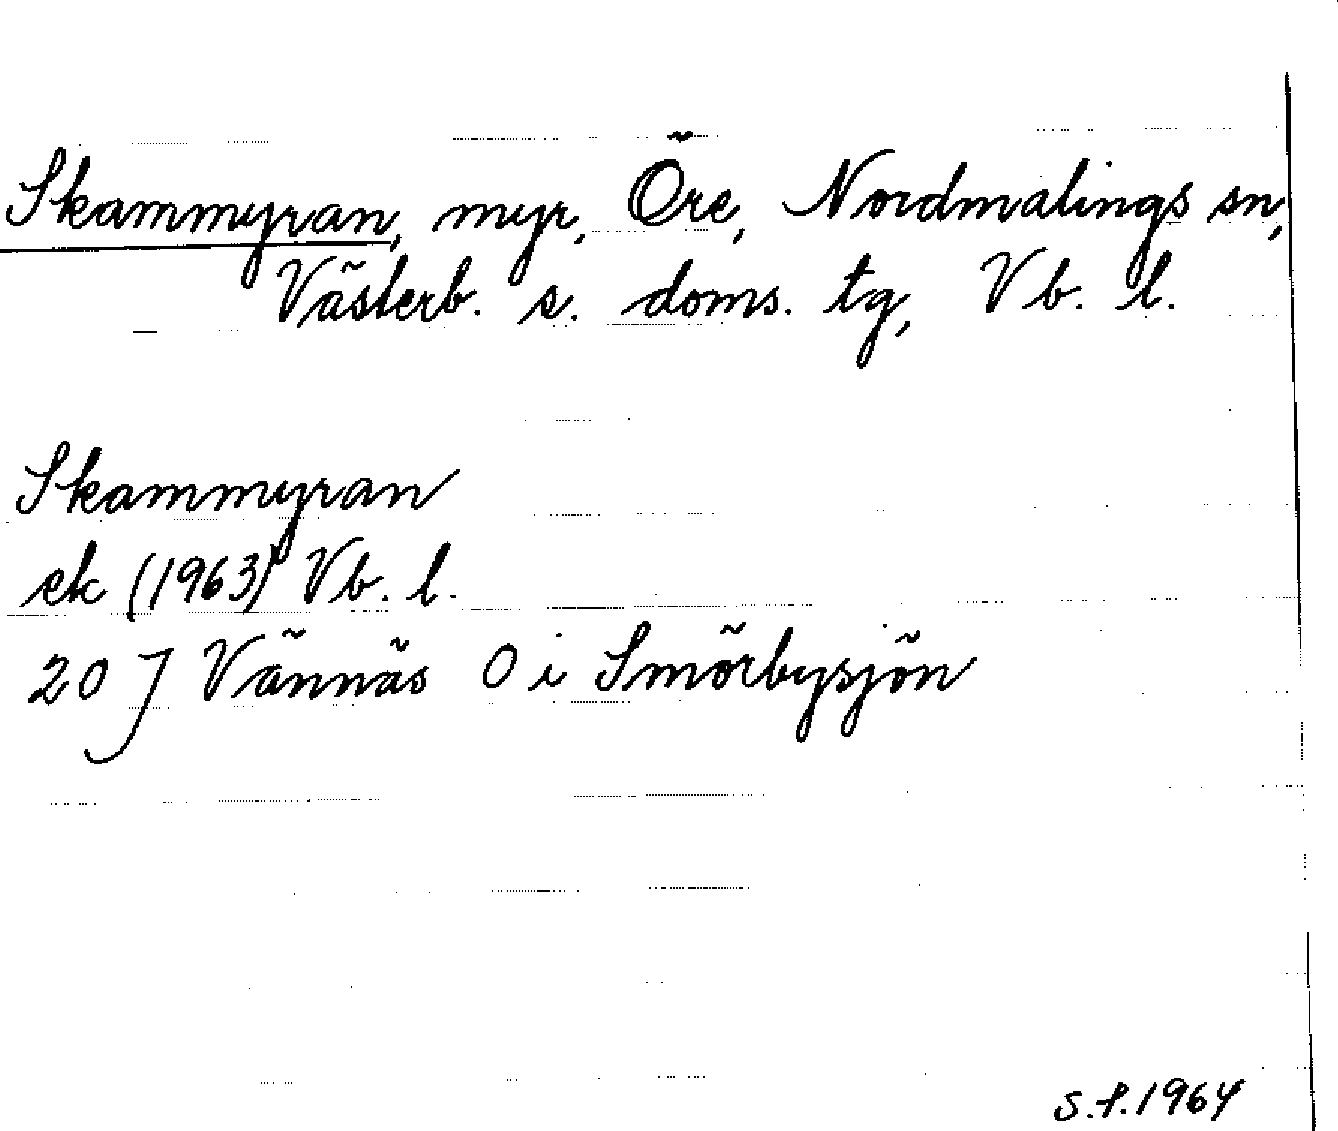 Skammyran, myr, Öre, Nordmalings sn,
Västerb. s. doms. tg, Vb. l.
Skammyran
ek (1963) Vb. l.
20 J Vännäs O i Smörbysjön
S.P. 1964